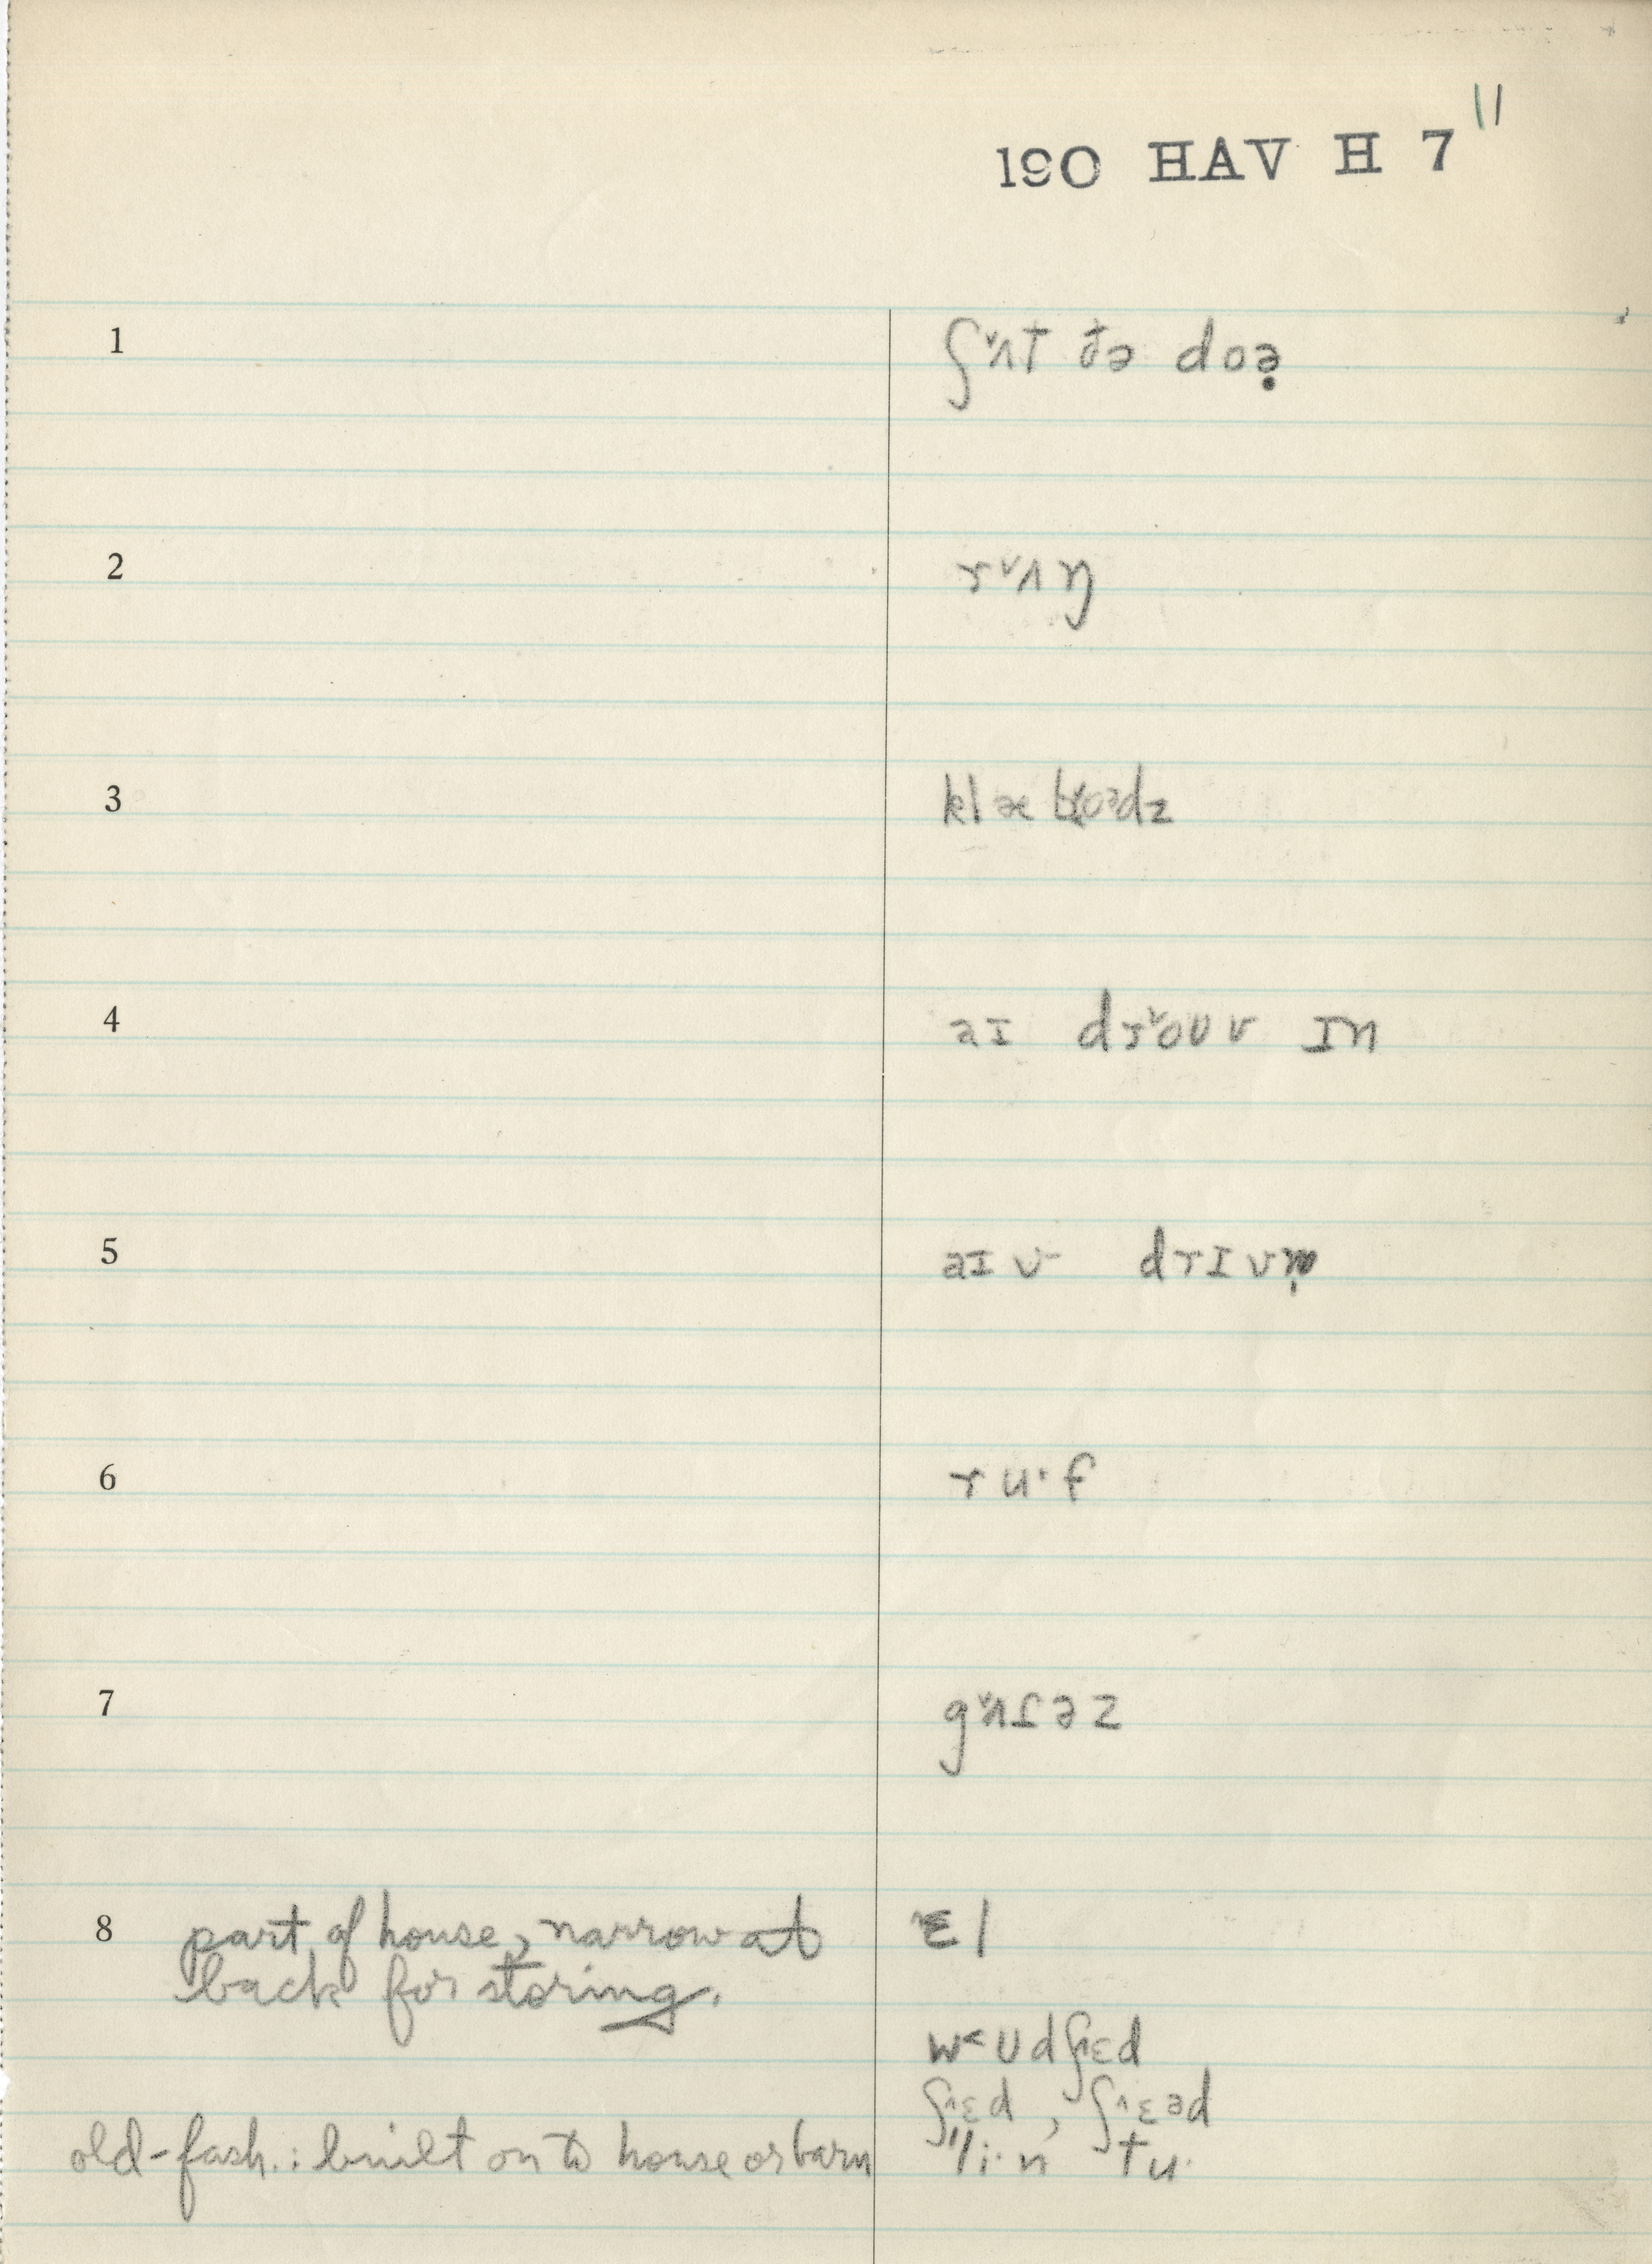 11
190 HAV H 7
1 ʃ˅ʌt ðə doə̣
2 r˅ʌŋ
3 klæboədz
4 aɪ dr˅oʊv ɪn
5 aɪv drɪvn̩
6 ru·f
7 g˅ʌɾəz
8 part of house, narrow at ˄ɛl
back for storing.
w˂ʊdʃ˄ɛd
ʃ˄ɛd, ʃ˄ɛəd
old-fash.: built on to house or barn "li·n tu·